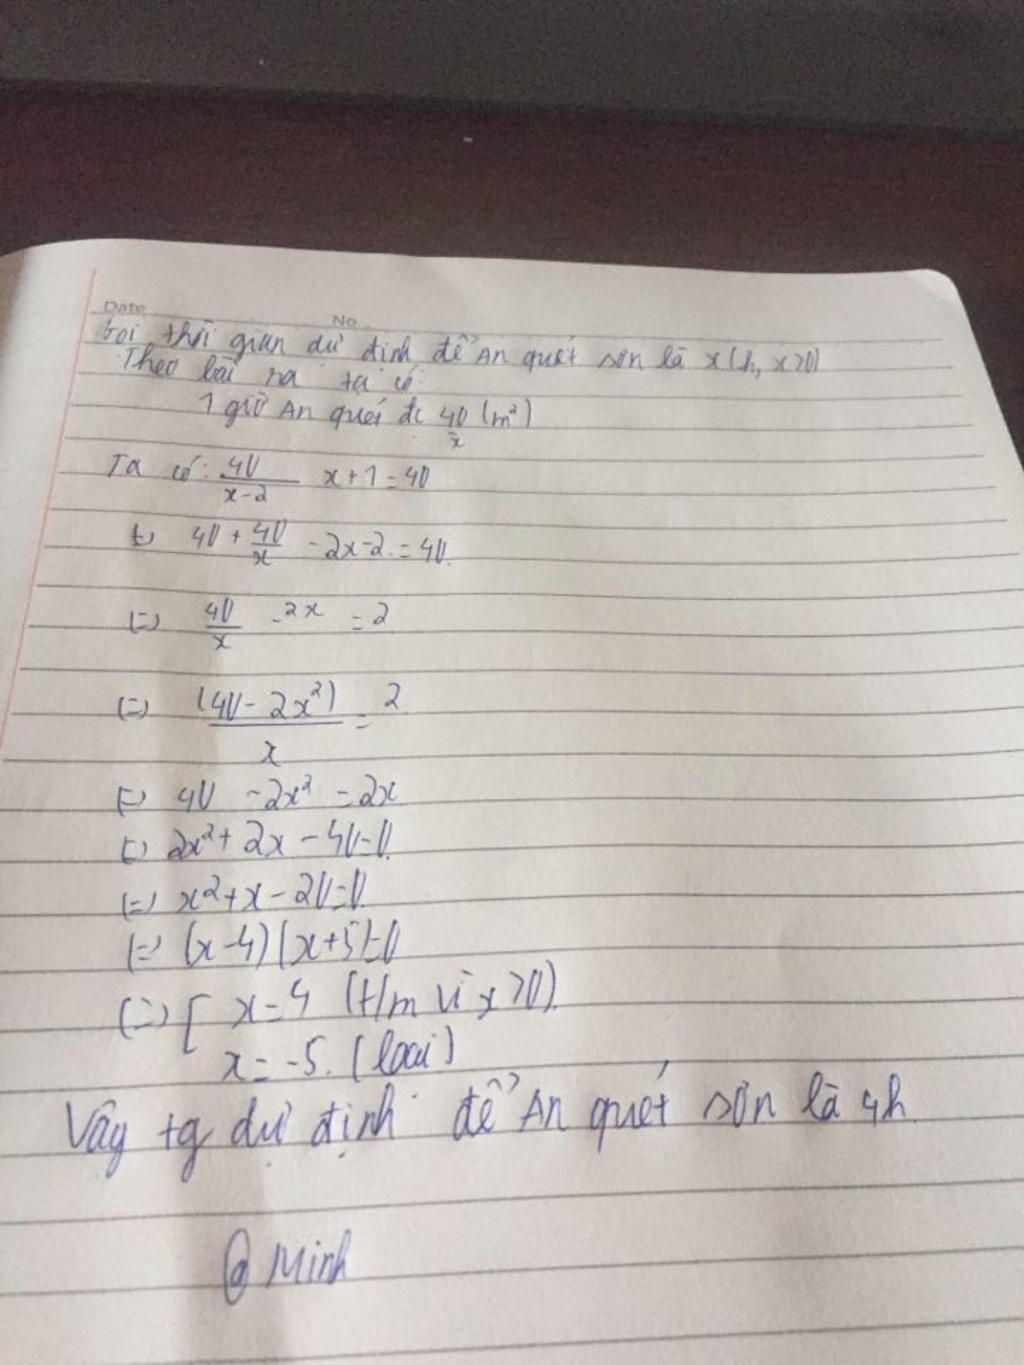 Date No
Gọi thời gian dự định để An quét sơn là x (h, x>0)
Theo bài ra ta có:
1 giờ An quét đc 40/x (m²)
Ta có: 40/x-2 x+1=40
(=) 40 + 40/x -2x-2 = 40.
(=) 40/x -2x = 2
(=) (40 - 2x²)/x = 2
(=) 40 -2x² = 2x
(=) 2x² + 2x - 40=0.
(=) x²+x-20=0.
(=) (x-4)(x+5)=0
(=) [ x=4 (t/m vì x>0)
x=-5. (loại)
Vậy tg dự định để An quét sơn là 4h
@ Minh